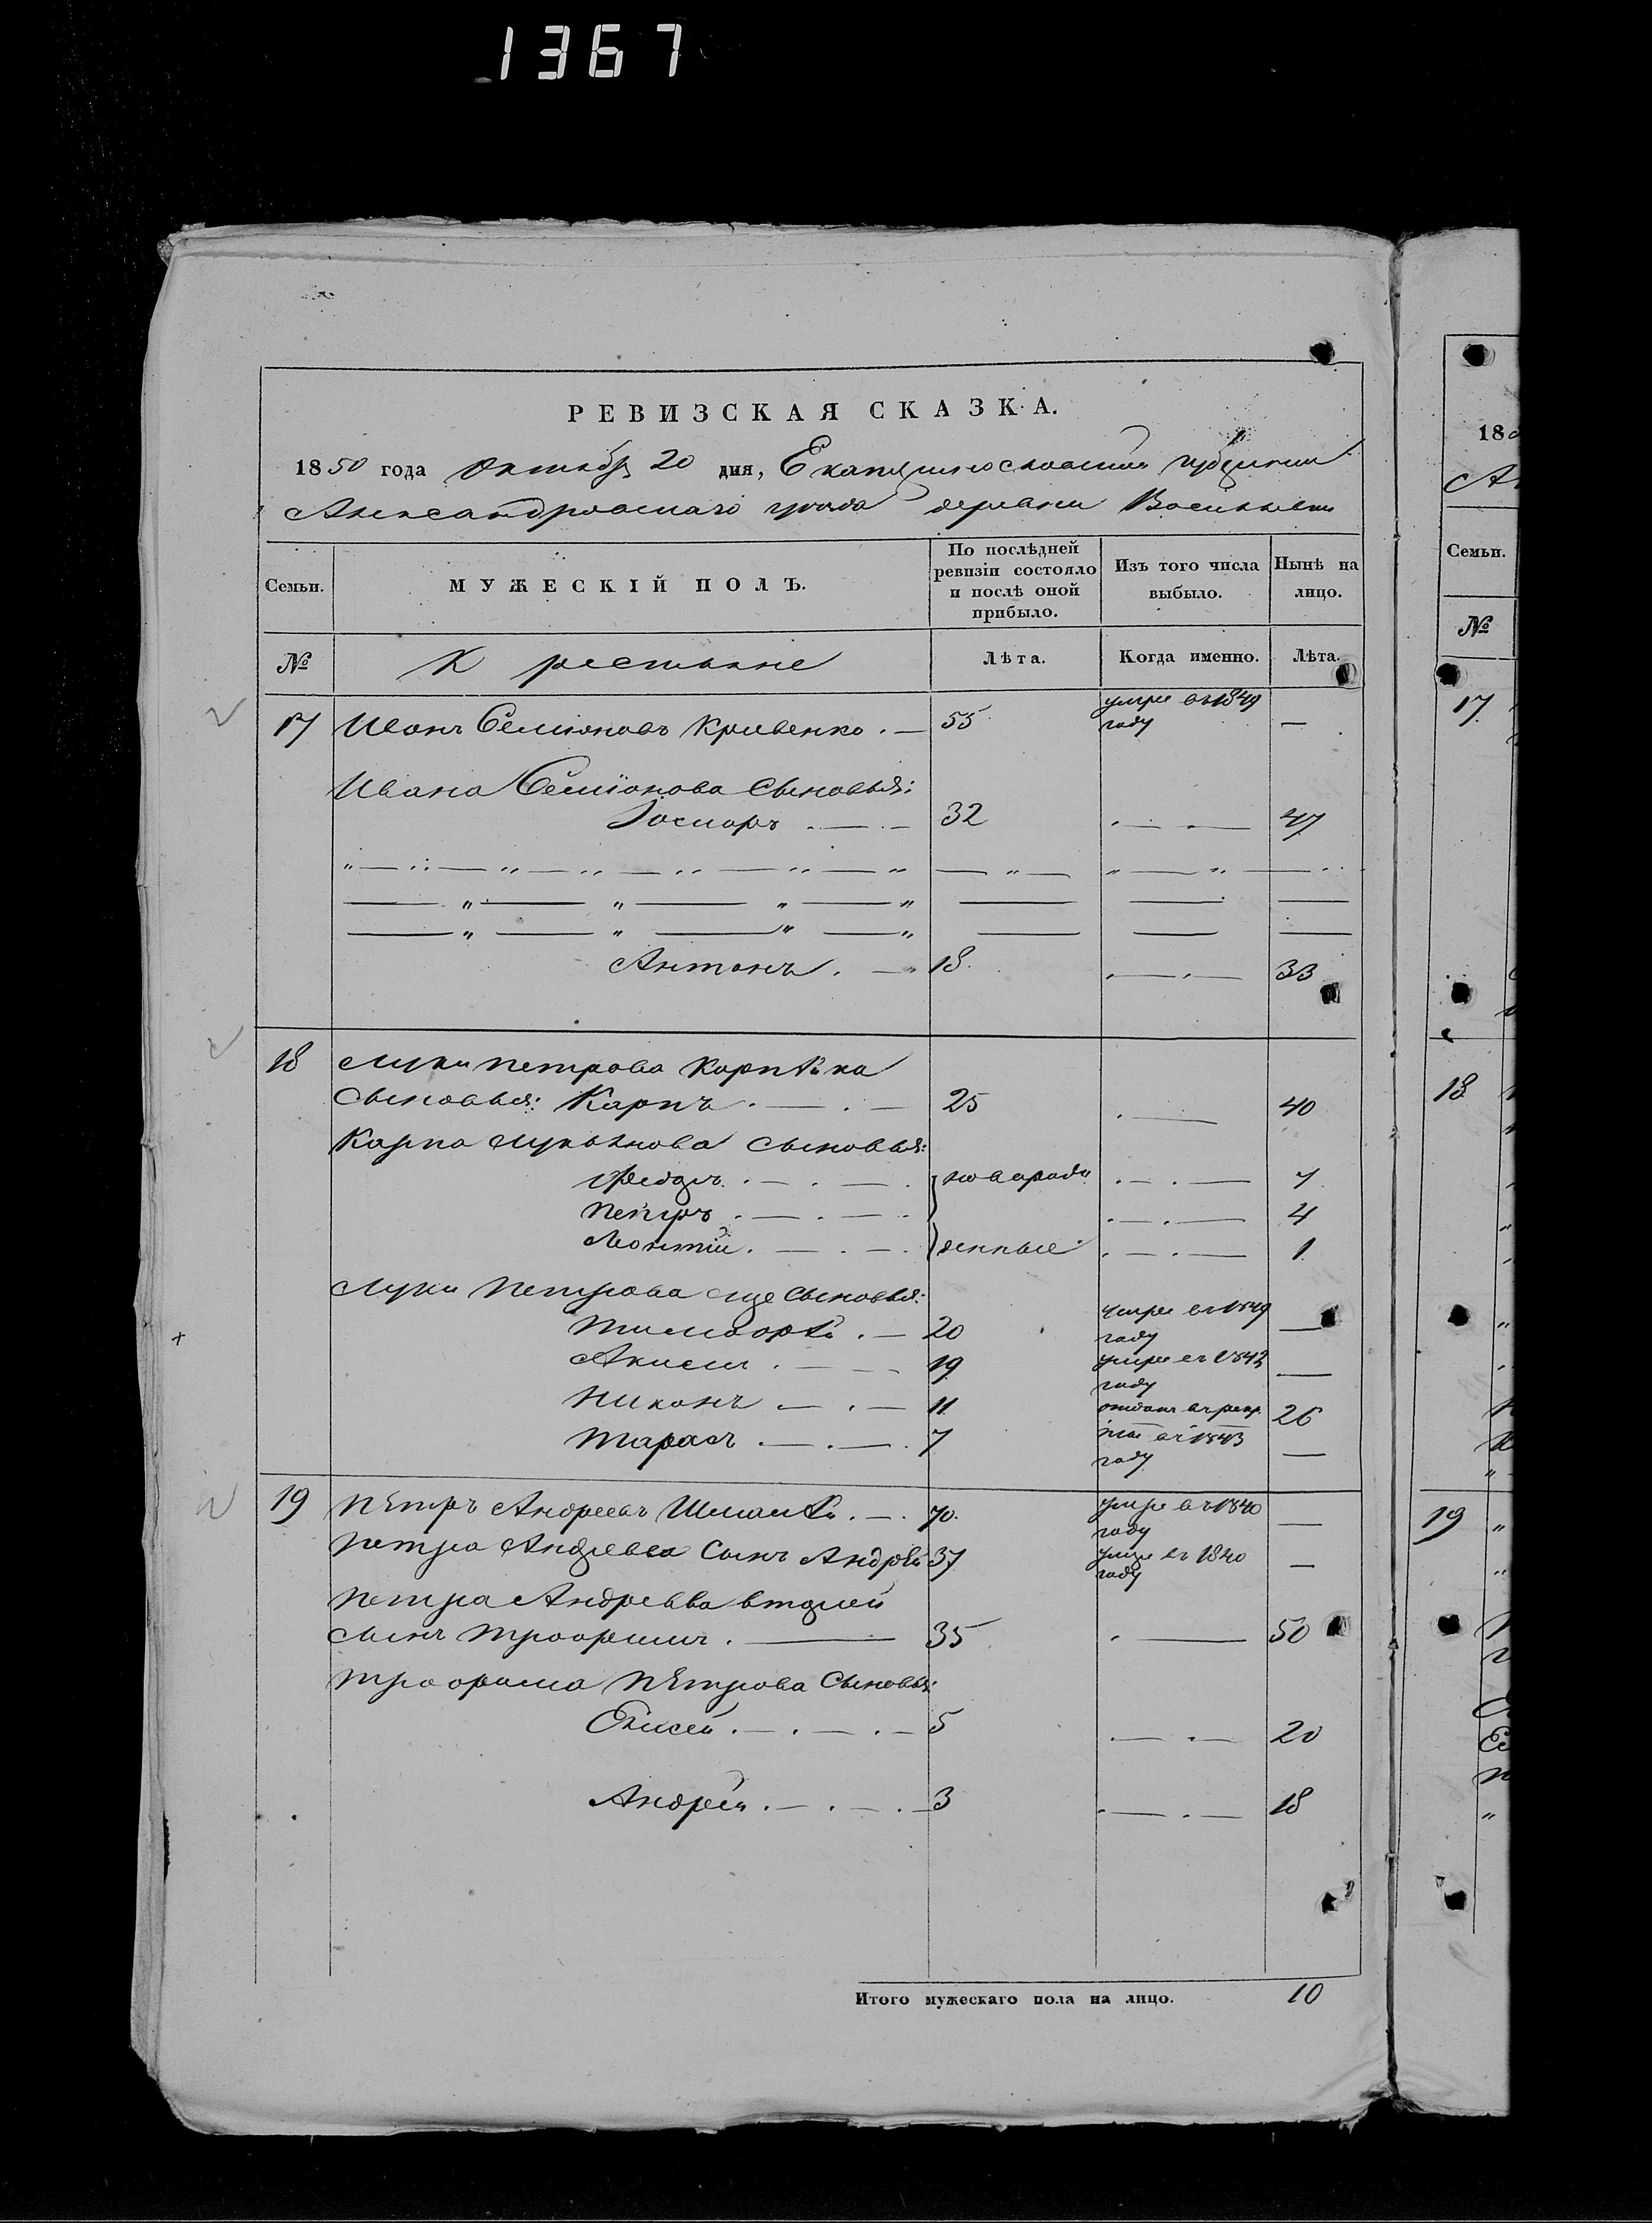 1367
РЕВИЗСКАЯ СКАЗКА.
1850 года Октября 20 дня, Екатеринославской губернии
Александровскаго уезда деревни Васильевки
Семьи.
МУЖЕСКІЙ ПОЛЪ.
По послѣдней ревизіи состояло и послѣ оной прибыло.
Изъ того числа выбыло.
Нынѣ на лицо.
№ Крестьяне Лѣта. Когда именно. Лѣта.
17 Иванъ Семіоновъ Кривенко . — 55 умре въ 1849 году —
Ивана Семіонова Сыновья:
32 . — . — 47
Антонъ . — 18 . — . — 33
18 Луки Петрова
Сыновья: Карпъ . — . — 25 . — 40
Карпа Лукьянова Сыновья:
Федоръ . — . — . новорож . — . — 7
Петръ . — . — . . — . — 4
Леонтій . — . — . денные . — . — 1
Луки Петрова еще Сыновья:
Тимофѣй . — 20 умре въ 1849 году —
Акимъ . — — 19 умре въ году —
Никонъ . — . — 11 отданъ въ рекр. 26
Тарасъ . — . — . 7 въ 1843 году —
19 Пѣтръ Андреевъ . — . 70. умре въ 1840 году —
Петра Андреева Сынъ Андрѣй 37 умре въ 1840 году —
Петра Андреева вторый
Сынъ Трофимъ . — 35 . — 50
Трофима Пѣтрова Сыновья:
Елисей . — . — . — 5 . — . — 20
Андрей . — . — . — 3 . — . — 18
Итого мужескаго пола на лицо. 10
18
Семьи.
№
17
18
19